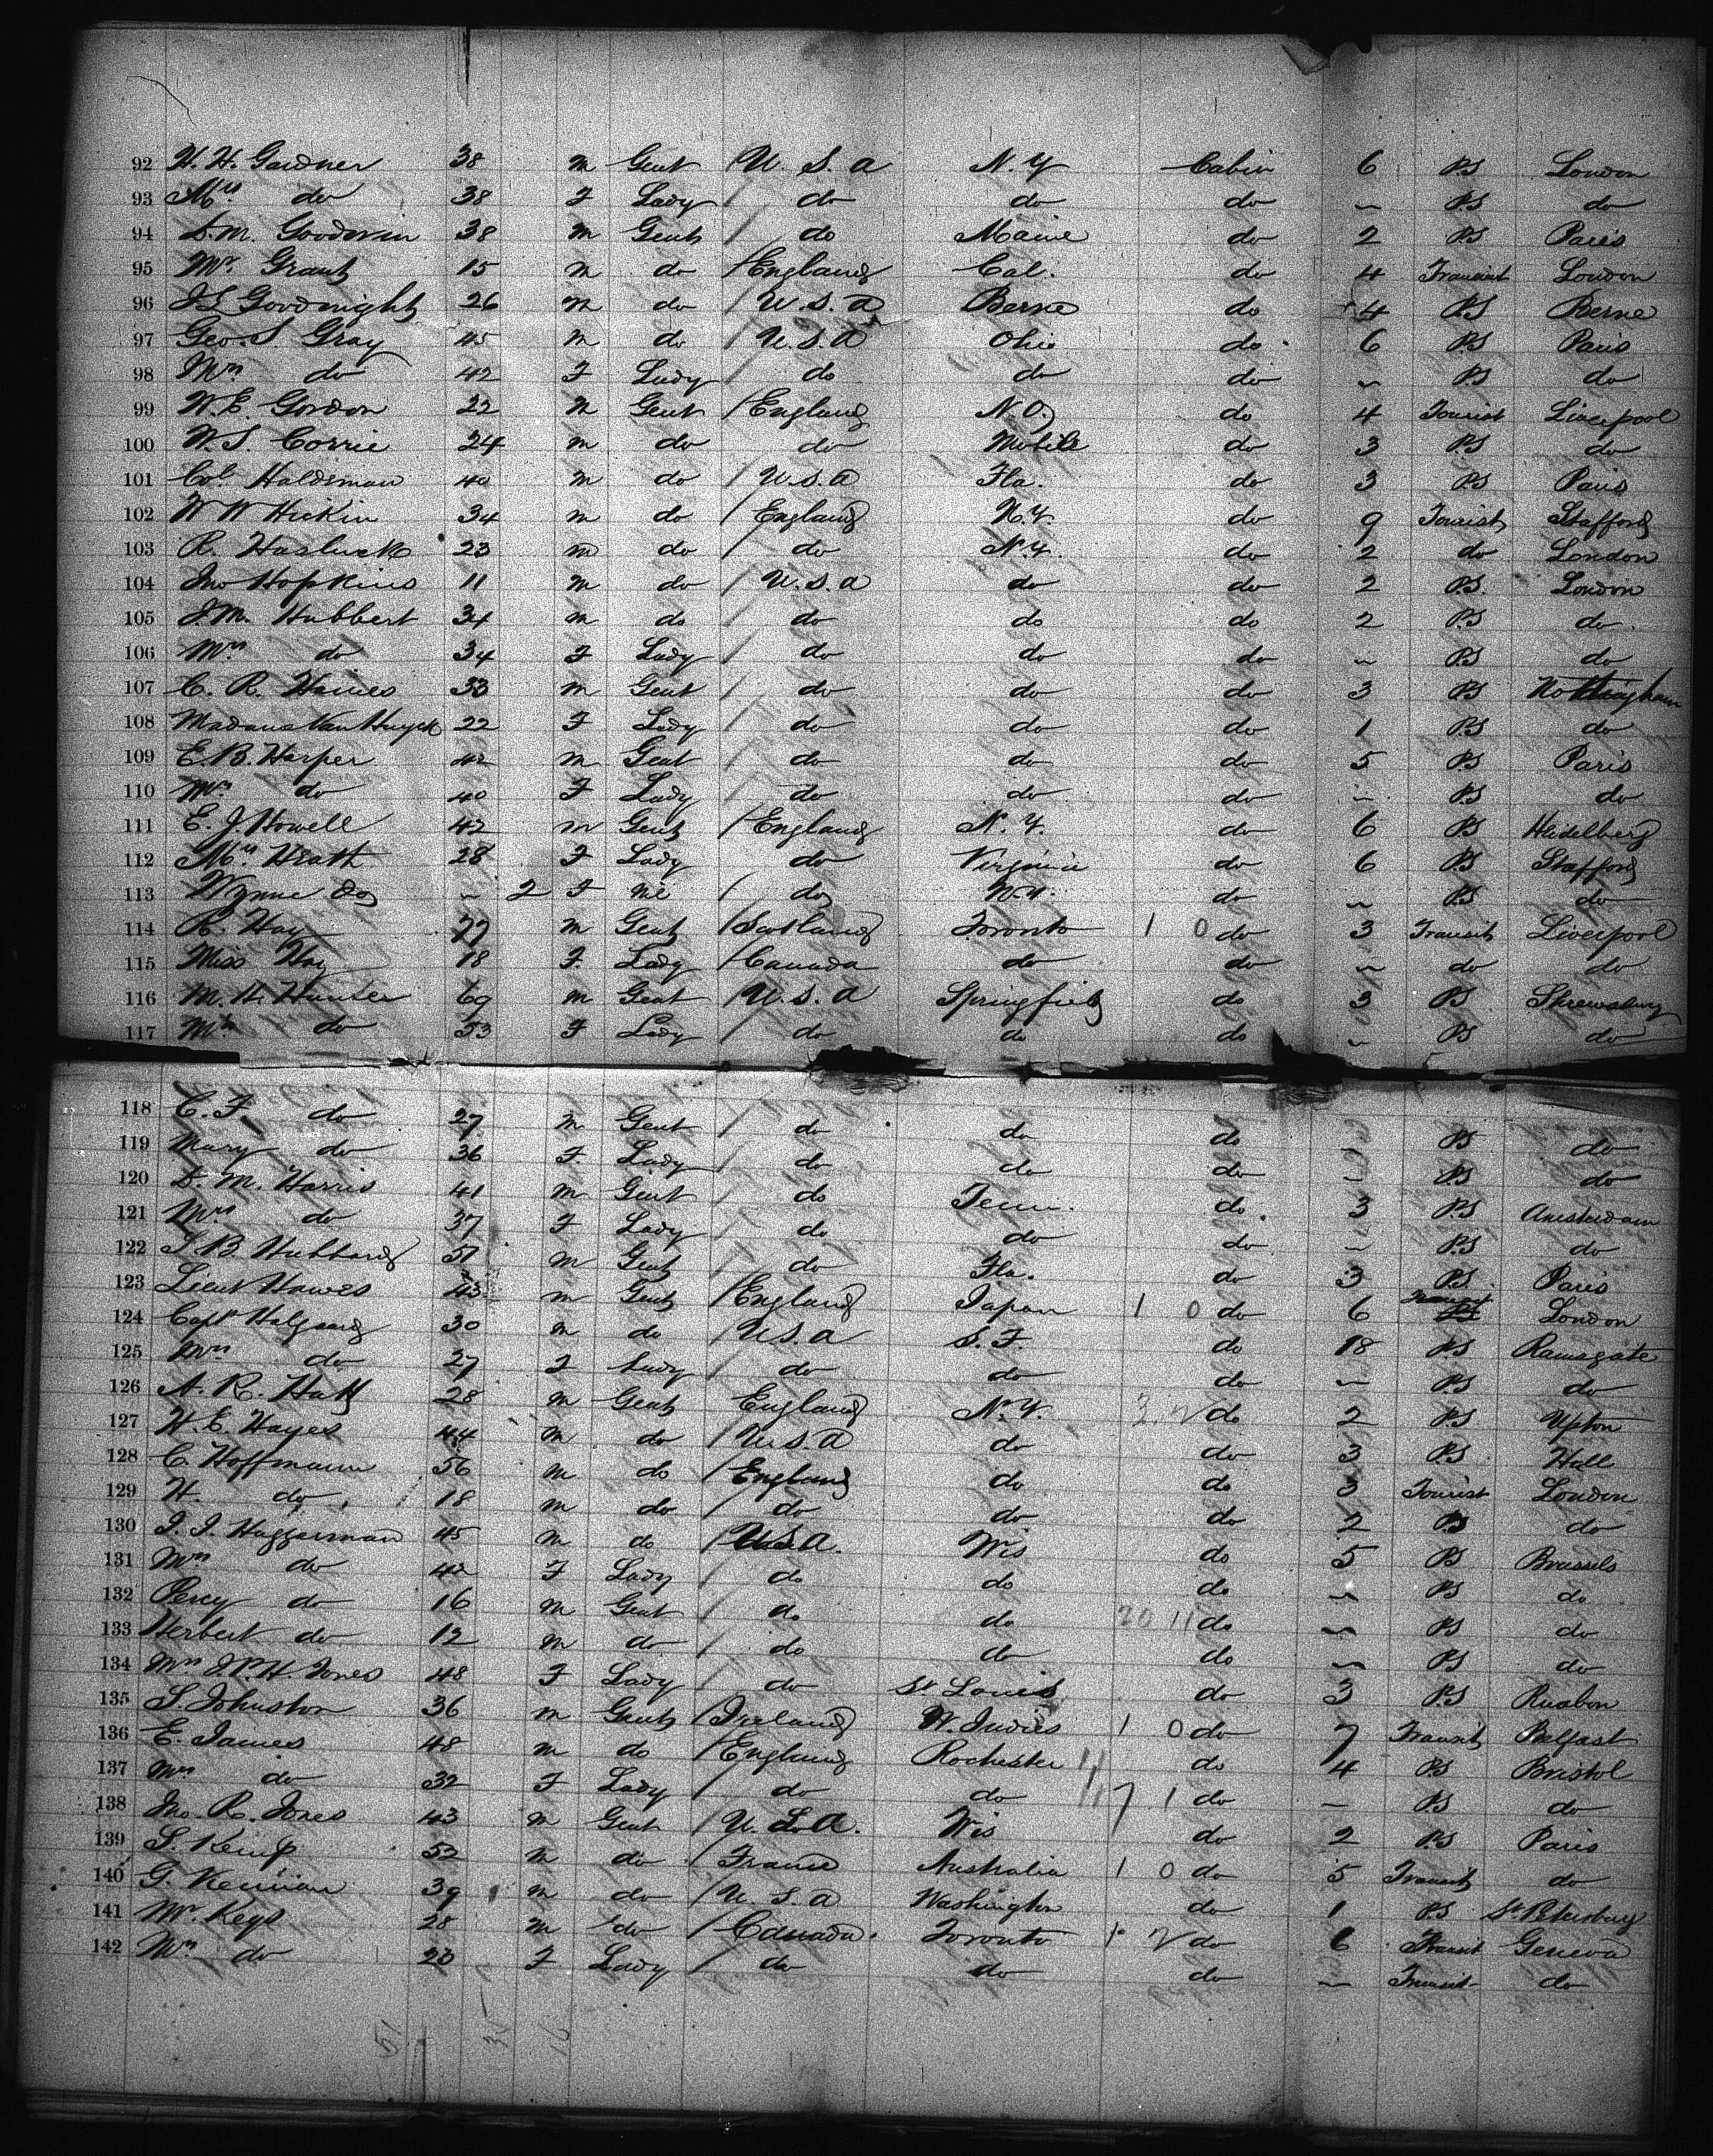 92 H. H. Gardner 38 m Gent / U. S. a N. Y Cabin 6 P.S London
93 Mrs do 38 F Lady / do do do — P.S do
94 D. M. Goodwin 38 m Gent / do Maine do 2 P.S Paris
95 Mr. Grant 15 m do / England Cal. do 4 Transient London
96 J L Goodnight 26 m do / U. S. a Berne do 4 P.S Berne
97 Geo. S. Gray 45 m do / U. S. a Ohio do 6 P.S Paris
98 Mrs do 42 F Lady / do do do — P.S do
99 W. E. Gordon 22 m Gent / England N O. do 4 Tourist Liverpool
100 W. S. Corrie 24 m do do Mobile do 3 P.S do
101 Col. Haldeman 40 m do / U. S. a Fla. do 3 P.S Paris
102 W W Hickin 34 m do / England N. Y. do 9 Tourist Stafford
103 R. Hasluck 23 m do / do N. Y. do 2 do London
104 Jno Hopkins 11 m do / U. S. a do do 2 P.S. London
105 J. M. Hubbert 34 m do do do do 2 P.S do
106 Mrs do 34 F Lady / do do do — P.S do
107 C. R. Haines 33 m Gent / do do do 3 P.S Nottingham
108 Van Huyck 22 F Lady / do do do 1 P.S do
109 E. B. Harper 42 m Gent / do do do 5 P.S Paris
110 Mrs do 40 F Lady / do do do — P.S do
111 E. J. Howell 42 m Gent / England N. Y. do 6 P.S Heidelberg
112 Mrs Heath 28 F Lady do Virginia do 6 P.S Stafford
113 Wynne do — 2 F / do N. Y. do — P.S do
114 R. Hay 77 m Gent / Scotland Toronto 1 0 do 3 Transit Liverpool
115 Miss Hay 18 F. Lady / Canada do do — do do
116 M. H. Hunter 69 m Gent / U. S. a Springfield do 3 P.S Shrewsbury
117 Mrs do 53 F Lady / do do do — P.S do
118 C. F do 27 m Gent / do do do — P.S do
119 Mary do 36 F. Lady / do do do — P.S do
120 D. M. Harris 41 m Gent / do Tenn. do 3 P.S Amsterdam
121 Mrs do 37 F Lady / do do do — P.S do
122 S. B. Hubbard 51 m Gent / do Fla. do 3 P.S Paris
123 Lieut Hawes 43 m Gent / England Japan 1 0 do 6 Transit London
124 Capt Halgaard 30 m do / U S. a S. F. do 18 P.S Ramsgate
125 Mrs do 27 F Lady / do do do — P.S do
126 A. R. Hall 28 m Gent England N. Y. do 2 P.S Upton
127 H. E. Hayes 44 m do / U. S. a do do 3 P.S Hull
128 C. Hoffmann 56 m do / England do do 3 Tourist London
129 H. do 18 m do / do do do 2 P.S do
130 J. J. Haggarman 45 m do / U S. a. Wis do 5 P.S Brussels
131 Mrs do 42 F Lady / do do do — P.S do
132 Percy do 16 m Gent / do do 20 11 do — P.S do
133 Herbert do 12 m do / do do do — P.S do
134 Mrs J. P. H. Jones 48 F Lady / do St Louis do 3 P.S Ruabon
135 S. Johnston 36 m Gent / Ireland W. Indies 1 0 do 7 Transit Belfast
136 E. James 48 m do / England Rochester do 4 P.S Bristol
137 Mrs do 32 F Lady / do do 7 1 do — P.S do
138 Jno. R. Jones 43 m Gent / U. S. a. Wis do 2 P.S Paris
139 S. Kemp 52 m do / France Australia 1 0 do 5 Transit do
140 G. Kennan 39 m do / U. S. a Washington do 1 P.S St. Petersburg
141 Mr. Keys 28 m do / Canada. Toronto do 6 Transit Geneva
142 Mrs do 20 F Lady / do do do — Transit do